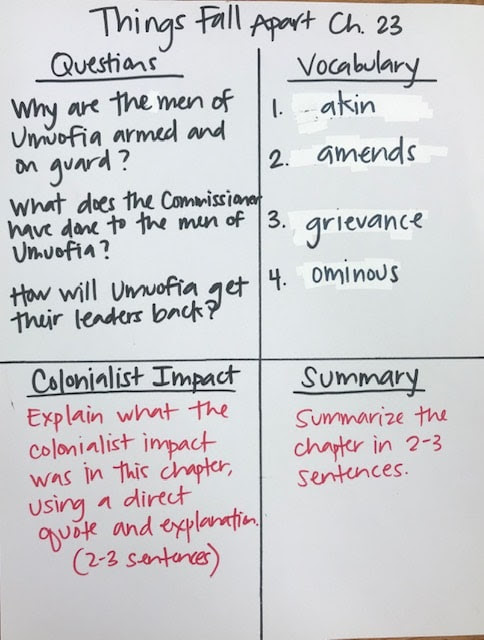 Things Fall Apart Ch. 23
Questions
Why are the men of
Umuofia armed and
on guard?
What does the Commissioner
have done to the men of
Umuofia?
How will Umuofia get
their leaders back?
Vocabulary
1. akin
2. amends
3. grievance
4. ominous
Colonialist Impact
Explain what the
colonialist impact
was in this chapter,
using a direct
quote and explanation.
(2-3 sentences)
Summary
Summarize the
chapter in 2-3
sentences.